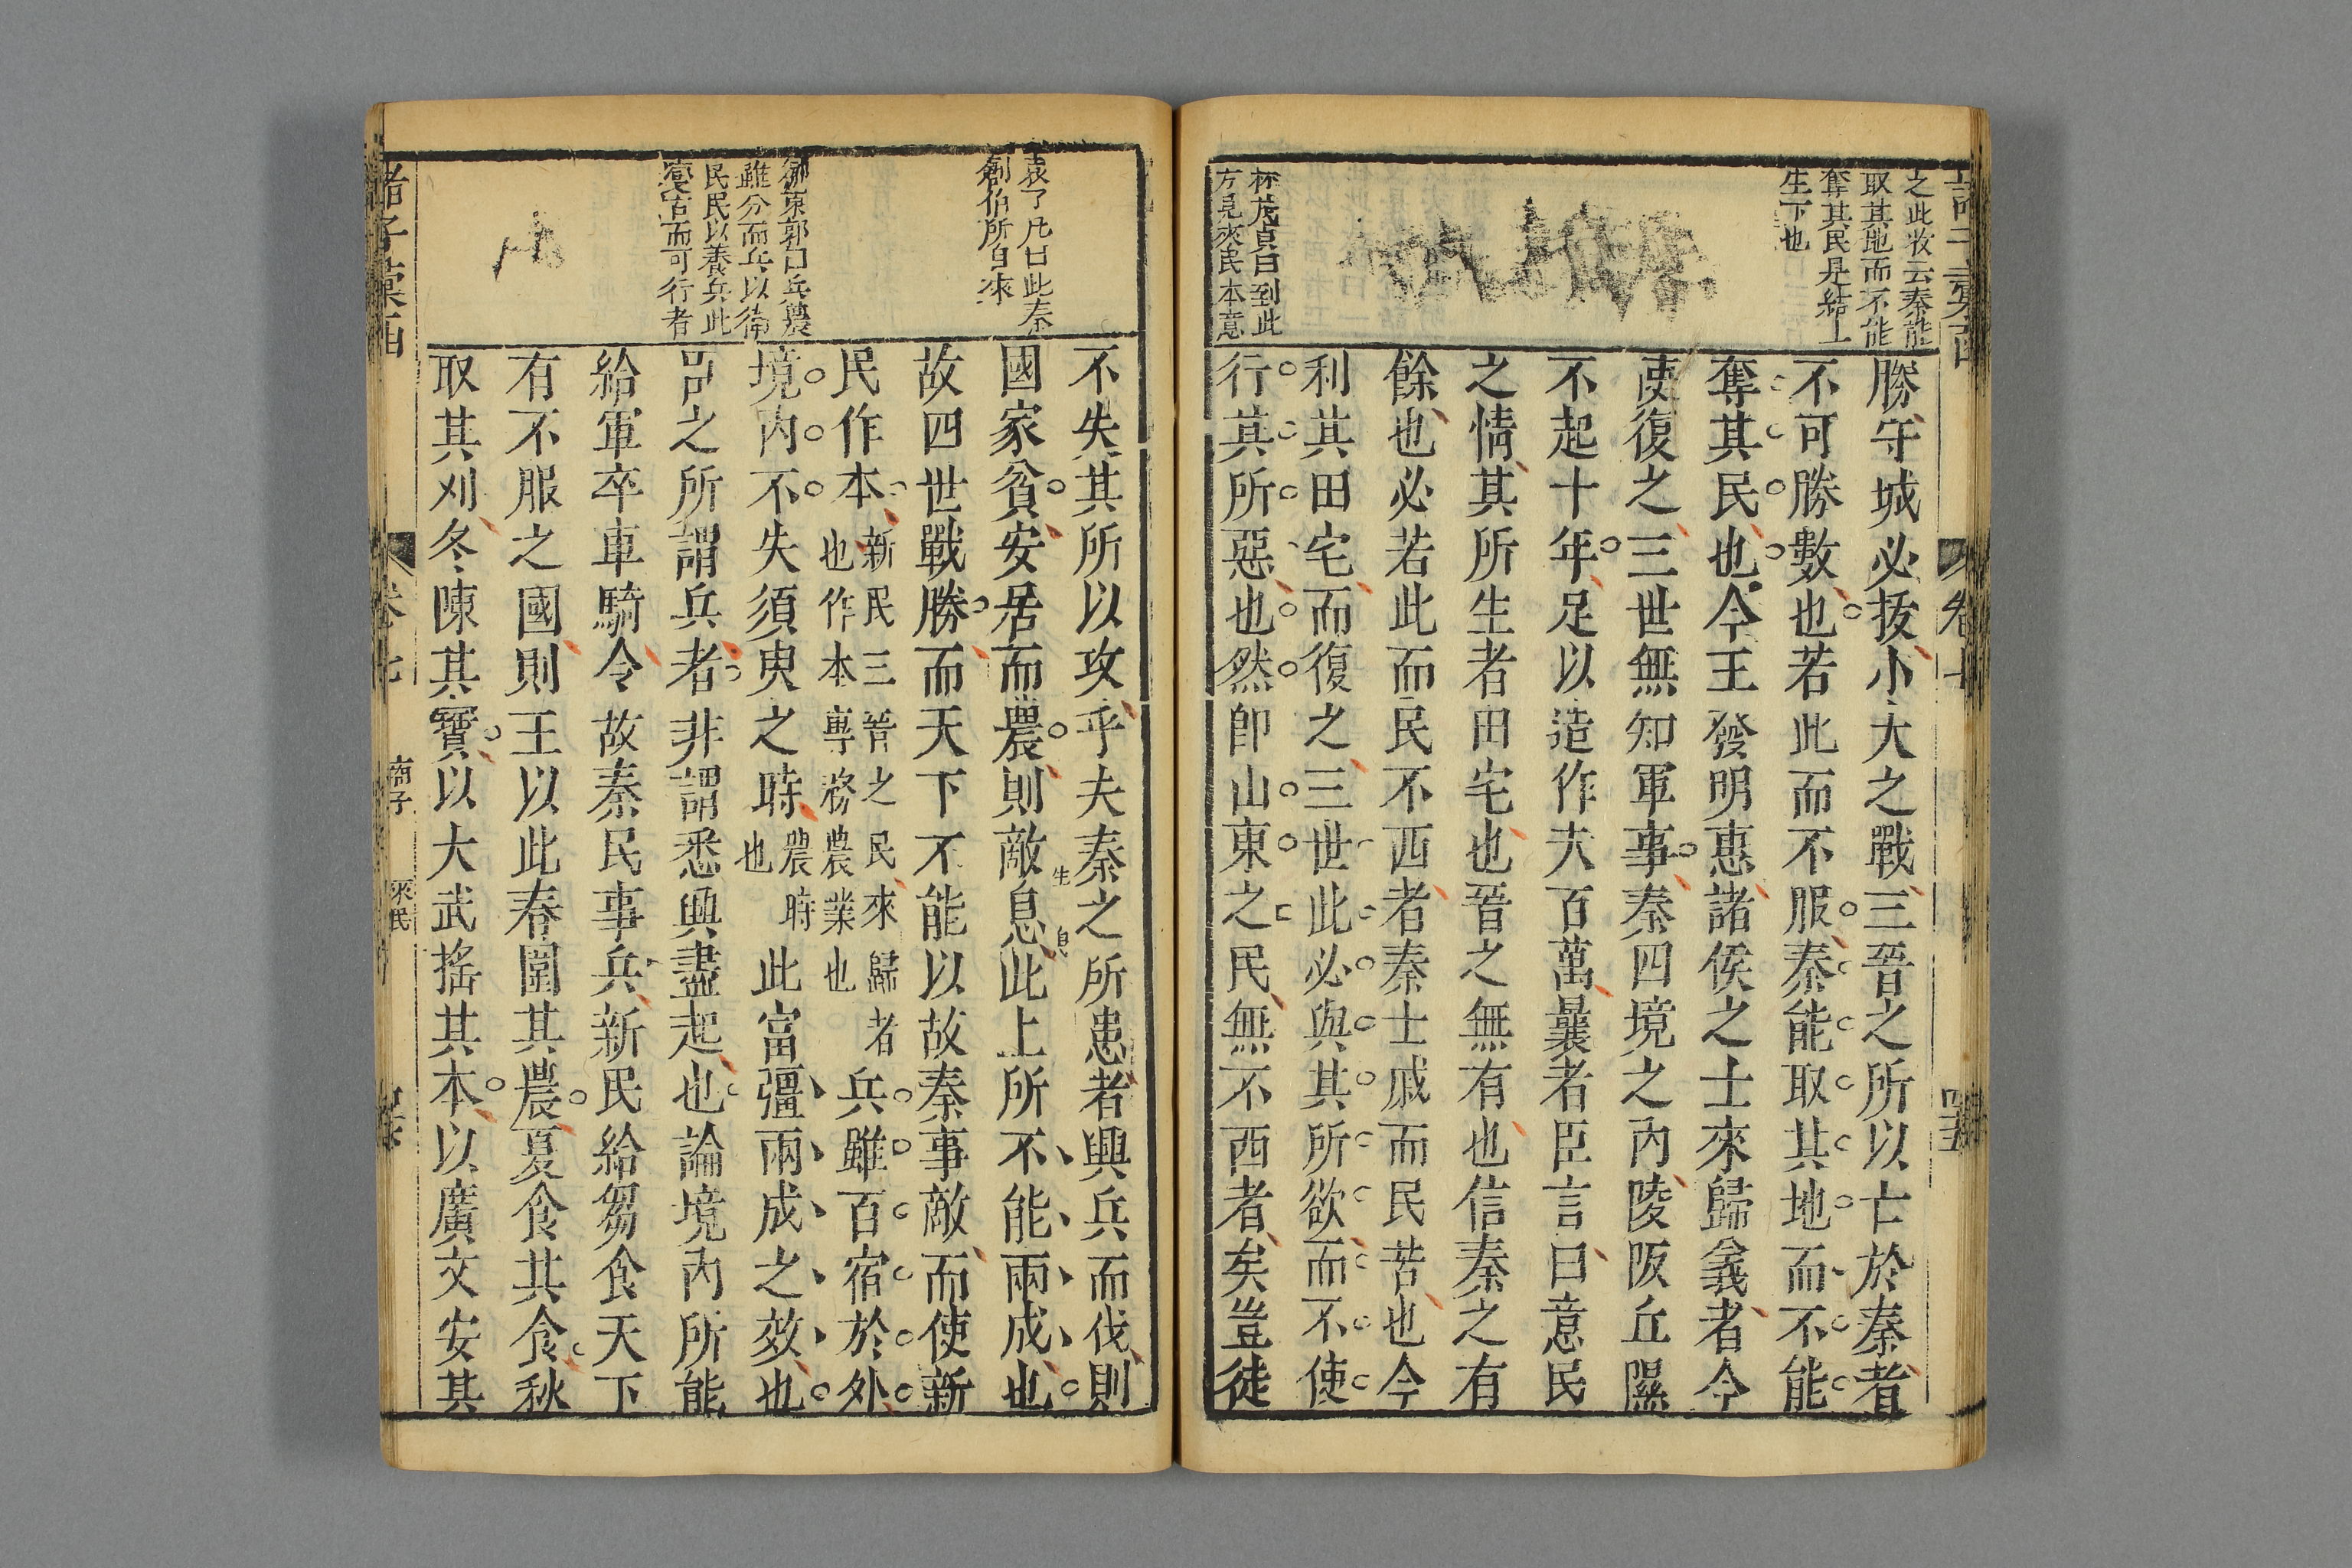 之此收云秦能
取其地而不能
奪其民是結上
生下也
林茂貞曰到此
方見來民本意
勝守城必拔小大之戰三晉之所以亡於秦者
不可勝數也若此而不服秦能取其地而不能
奪其民也今王發明惠諸侯之士來歸義者今
使復之三世無知軍事秦四境之內陵阪丘隰
不起十年足以造作夫百萬曩者臣言曰意民
之情其所生者田宅也晉之無有也信秦之有
餘也必若此而民不西者秦士戚而民苦也今
利其田宅而復之三世此必與其所欲而不使
行其所惡也然卽山東之民無不西者矣豈徒
袁了凡曰此秦
創伯所自來
鄒東郭曰兵農
雖分而兵以衛
民民以養兵此
變古而可行者
不失其所以攻乎夫秦之所患者興兵而伐則
國家貧安居而農則敵息此上所不能兩成也
生
自
故四世戰勝而天下不能以故秦事敵而使新
民作本新民三晉之民來歸者也作本專務農業也兵雖百宿於外
境內不失須臾之時農時也此富彊兩成之效也
臣之所謂兵者非謂悉興盡起也論境內所能
給軍卒車騎令故秦民事兵新民給芻食天下
有不服之國則王以此春圍其農夏食其食秋
取其刈冬陳其寶以大武搖其本以廣文安其
諸子彙函
卷七
商子
來民